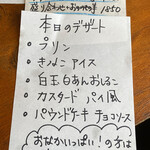 盛り合わせ+おかべつ¥1850
本日のデザート
・プリン
・きなこアイス
・白玉白あんおしるこ
・カスタードパイ風
・パウンドケーキ チョコソース
おなかいっぱい!の方は